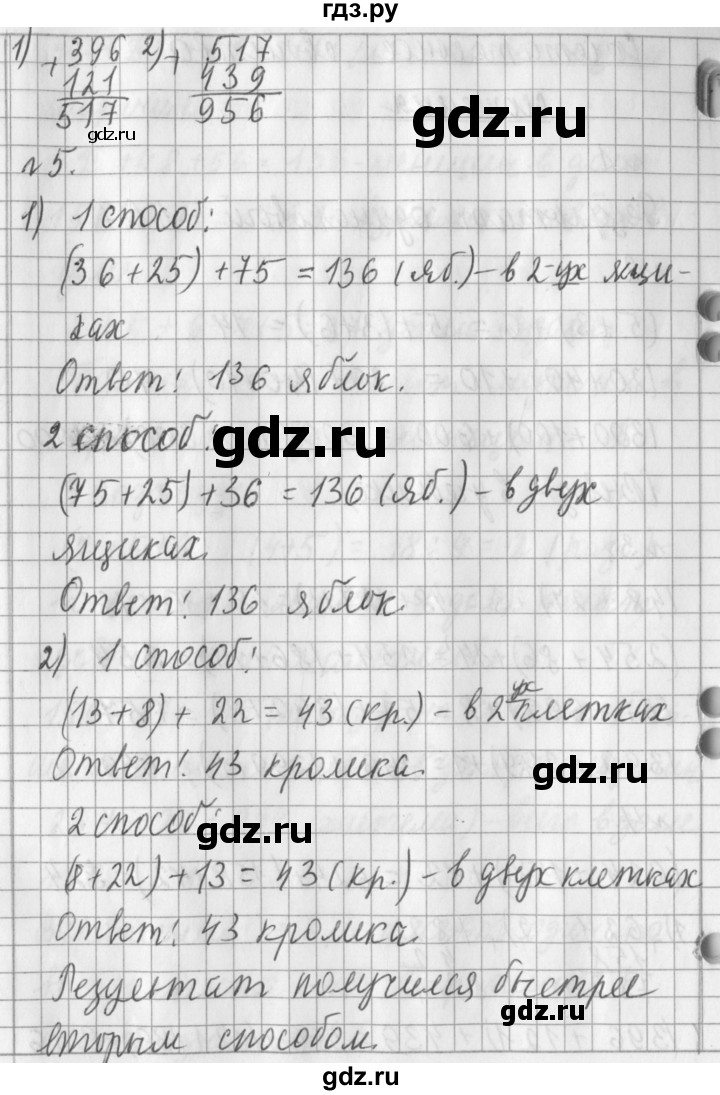 гдз.ру
1) + 396 2) + 517
121 439
517 956
gdz.ru
gdz.ru
№5.
1) 1 способ:
(36+25)+75 = 136 (яб.) – в 2-ух ящи-
ках
Ответ: 136 яблок.
2 способ:
gdz.ru
(75+25)+36 = 136 (яб.) – в двух
ящиках.
Ответ: 136 яблок.
2) 1 способ:
(13+8) + 22 = 43 (кр.) – в 2ух клетках
Ответ: 43 кролика.
gdz.ru
2 способ:
gdz.ru
(8+22)+13 = 43 (кр.) – в двух клетках
Ответ: 43 кролика.
gdz.ru
Резулентат получился быстрее
вторым способом.
gdz.ru